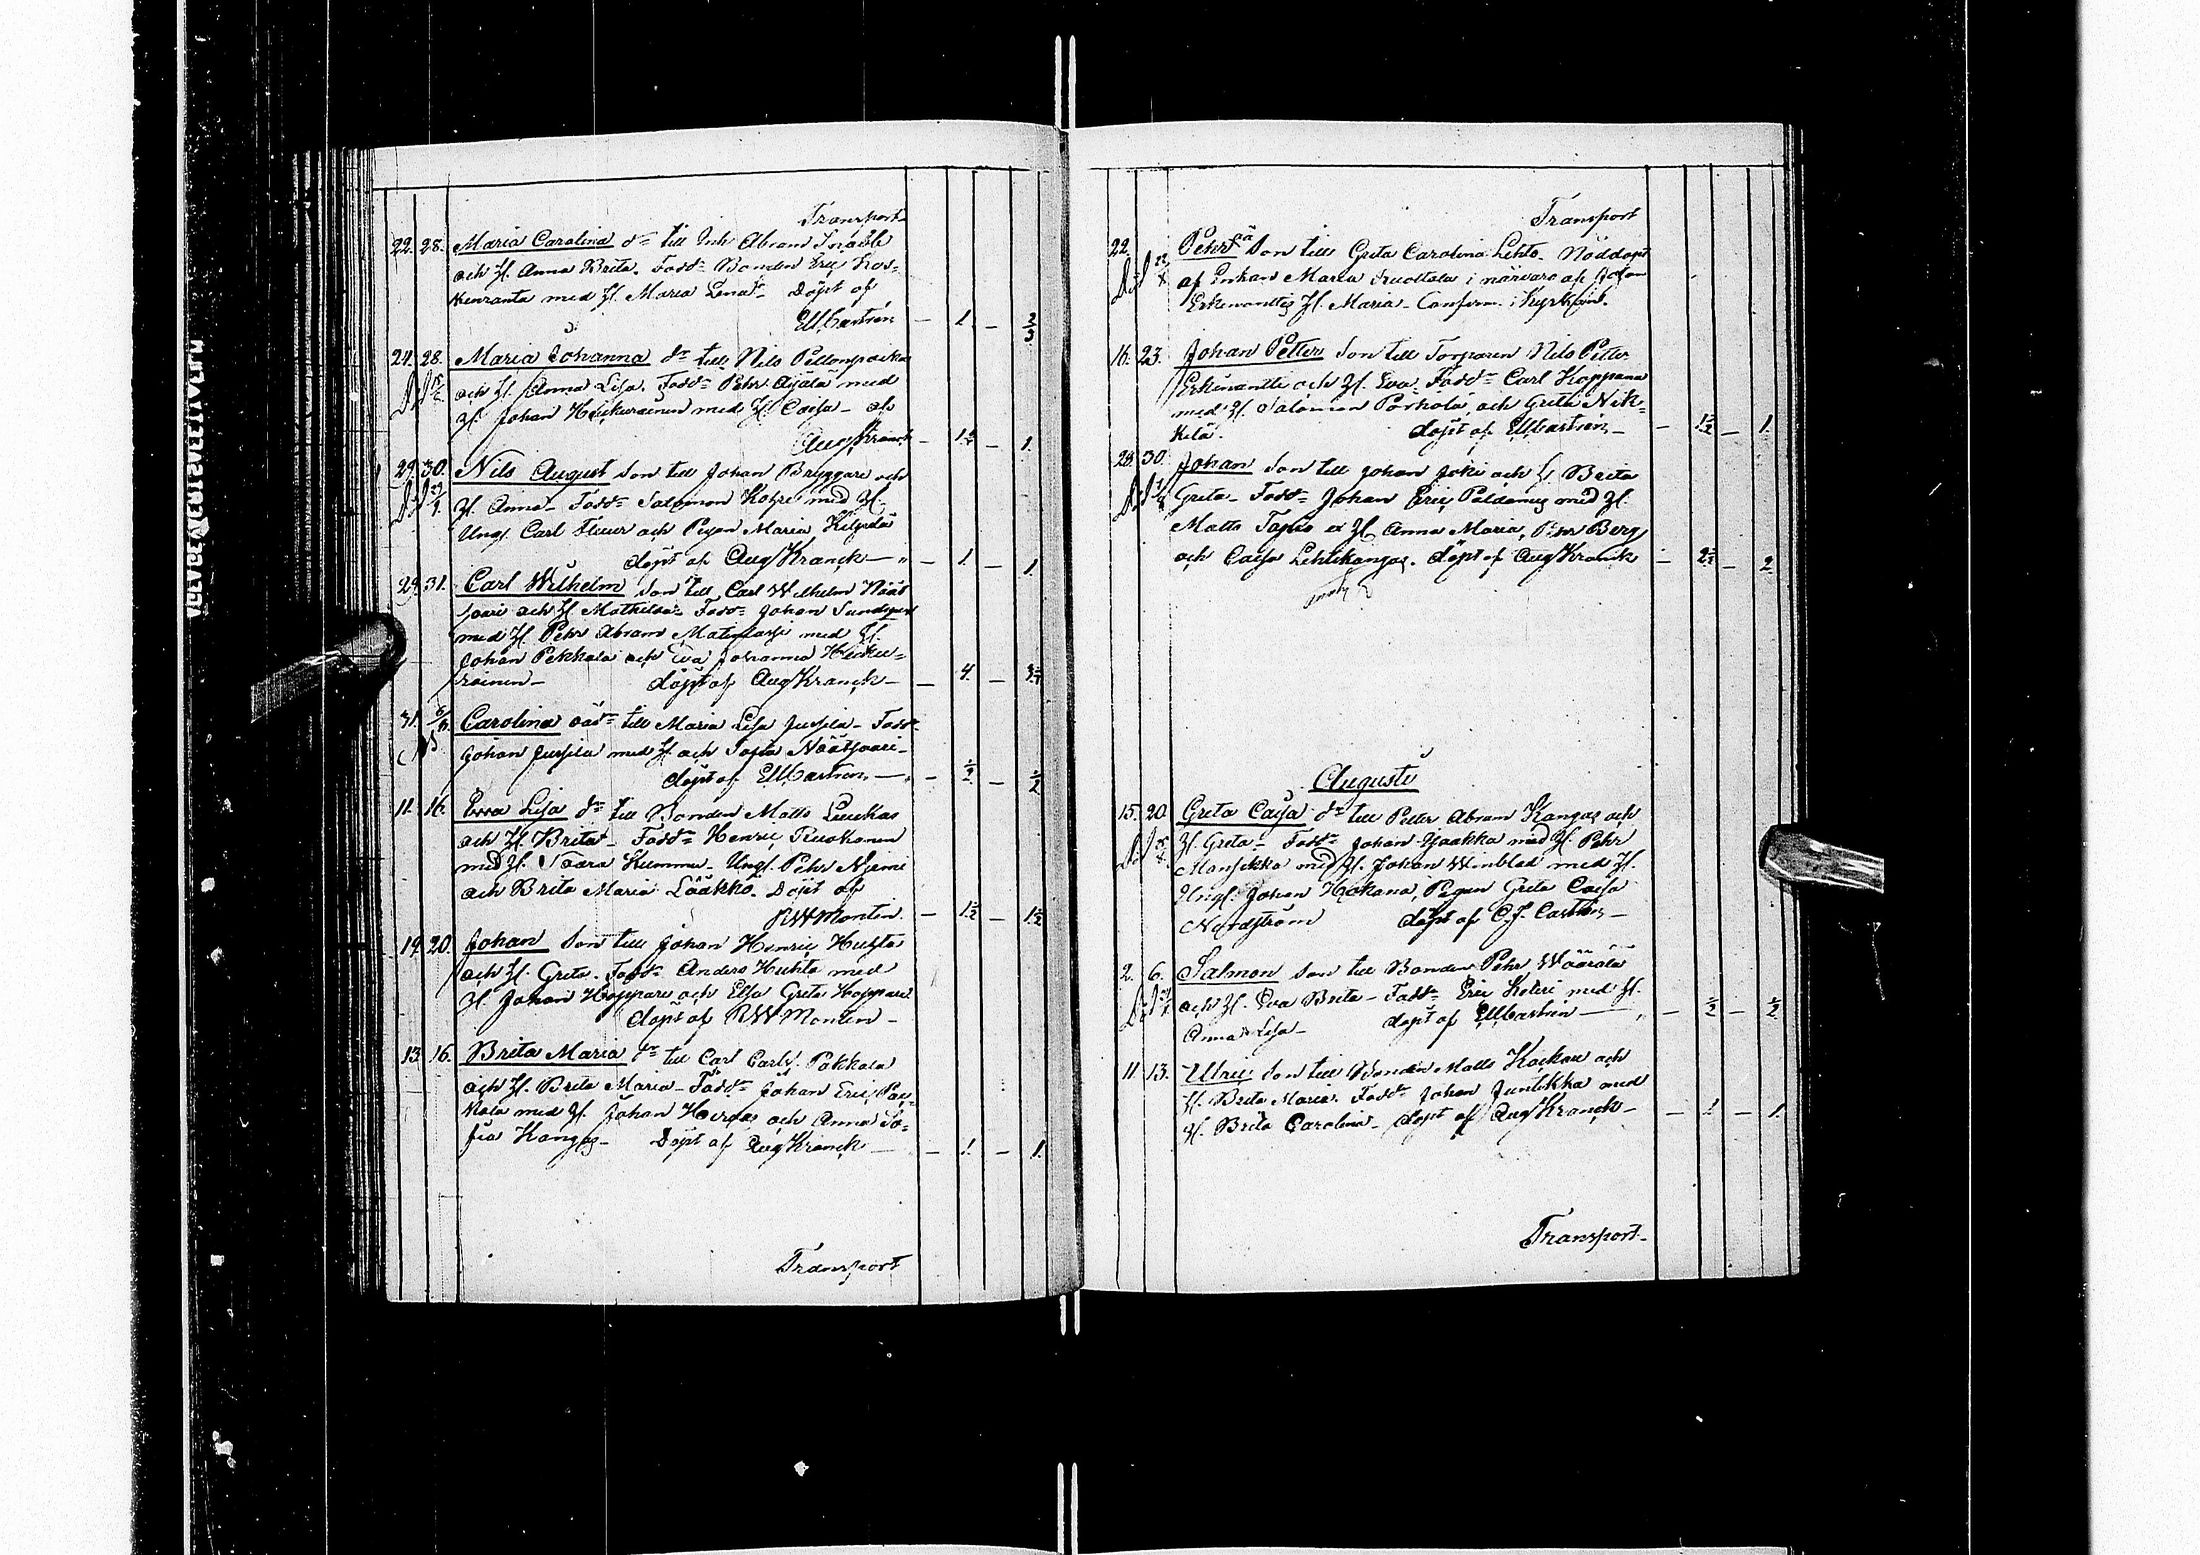 Transport
22. 28. Maria Carolina dr till Inh Abram
och H. Anna Brita. Fadd: Bonden Eric Kos-
kenranta med H. Maria Lena Döpt af
EMCastrén — 1. — 2/3
24. 28. Maria Johanna dr till Nils
och H. Anna Lisa. Fadd: Pehr Äijälä med
H. Johan med H. Caisa af
Aug Kranck — — 1.
29. 30. Nils August Son till Johan Bryggare och
H. Anna Fadd: Salomon med H.
Ungl. Carl och Pigan Maria Kilpelä
döpt af Aug Kranck — 1. — 1.
29. 31. Carl Wilhelm Son till Carl Wilhelm Näät
saari och H. Mathilda Fadd: Johan
med H. Pehr Abram med H.
Johan Pekkala och Eva Johanna Heiku-
rainen — döpt af Aug Kranck — 4. —
31. 6/8. Carolina oä dr till Maria Lisa Jussila Fadd:
Johan Jussila med H. och Sofia Näätsaari
döpt af EMCastrén — 1/2 — 1/2
11. 16. Eva Lisa dr till Bonden Matts
och H. Brita Fadd: Henric Ruokanen
med H. Kummu. Ungl. Pehr Niemi
och Brita Maria Lääkkö. Döpt af
RWMontin. — 1 1/2 — 1 1/2
19. 20. Johan Son till Johan Henric Huhta
och H. Greta. Fadd: Anders Huhta med
H. Johan Hoppari och Elsa Greta Hoppari
döpt af RWMontin
13. 16. Brita Maria dr till Carl Carls. Pakkala
och H. Brita Maria Fadd: Johan Eric Pak-
kala med H. Johan och Anna So-
fia Kangas Döpt af Aug Kranck — 1. — 1.
Transport
Transport
22. Pehr oä Son till Greta Carolina Lehto Nöddöpt
af Enkan Maria i närvaro af Johan
H. Maria Confirm. i Kyrkan.
16. 23. Johan Petter Son till Torparen Nils Petter
och H. Eva. Fadd: Carl Hoppana
med H. Salomon Pörhölä och Greta Nik-
kilä. döpt af EMCastrén — 1 1/2 — 1.
28. 30. Johan Son till Johan Joki och H. Brita
Greta Fadd: Johan Eric med H.
Matts Tapio H. Anna Maria, Pehr Berg
och Caisa Lehtikangas. döpt af Aug Kranck — — 2
Augusti
15. 20. Greta Caisa dr till Petter Abram Kangas och
H. Greta Fadd: Johan med H. Pehr
Mansikka med H. Johan Winblad med H.
Ungl. Johan Hakana, Pigan Greta Caisa
Nordström döpt af C.J. Castrén
2. 6. Salmon Son till Bonden Pehr Wäärälä
och H. Eva Brita Fadd: Eric med H.
Anna Lisa döpt af EMCastrén — 1/2 — 1/2
11. 13. Ulric Son till Bonden Matts och
H. Brita Maria. Fadd: Johan Juntikka med
H. Brita Carolina döpt af Aug Kranck — 1. — 1.
Transport